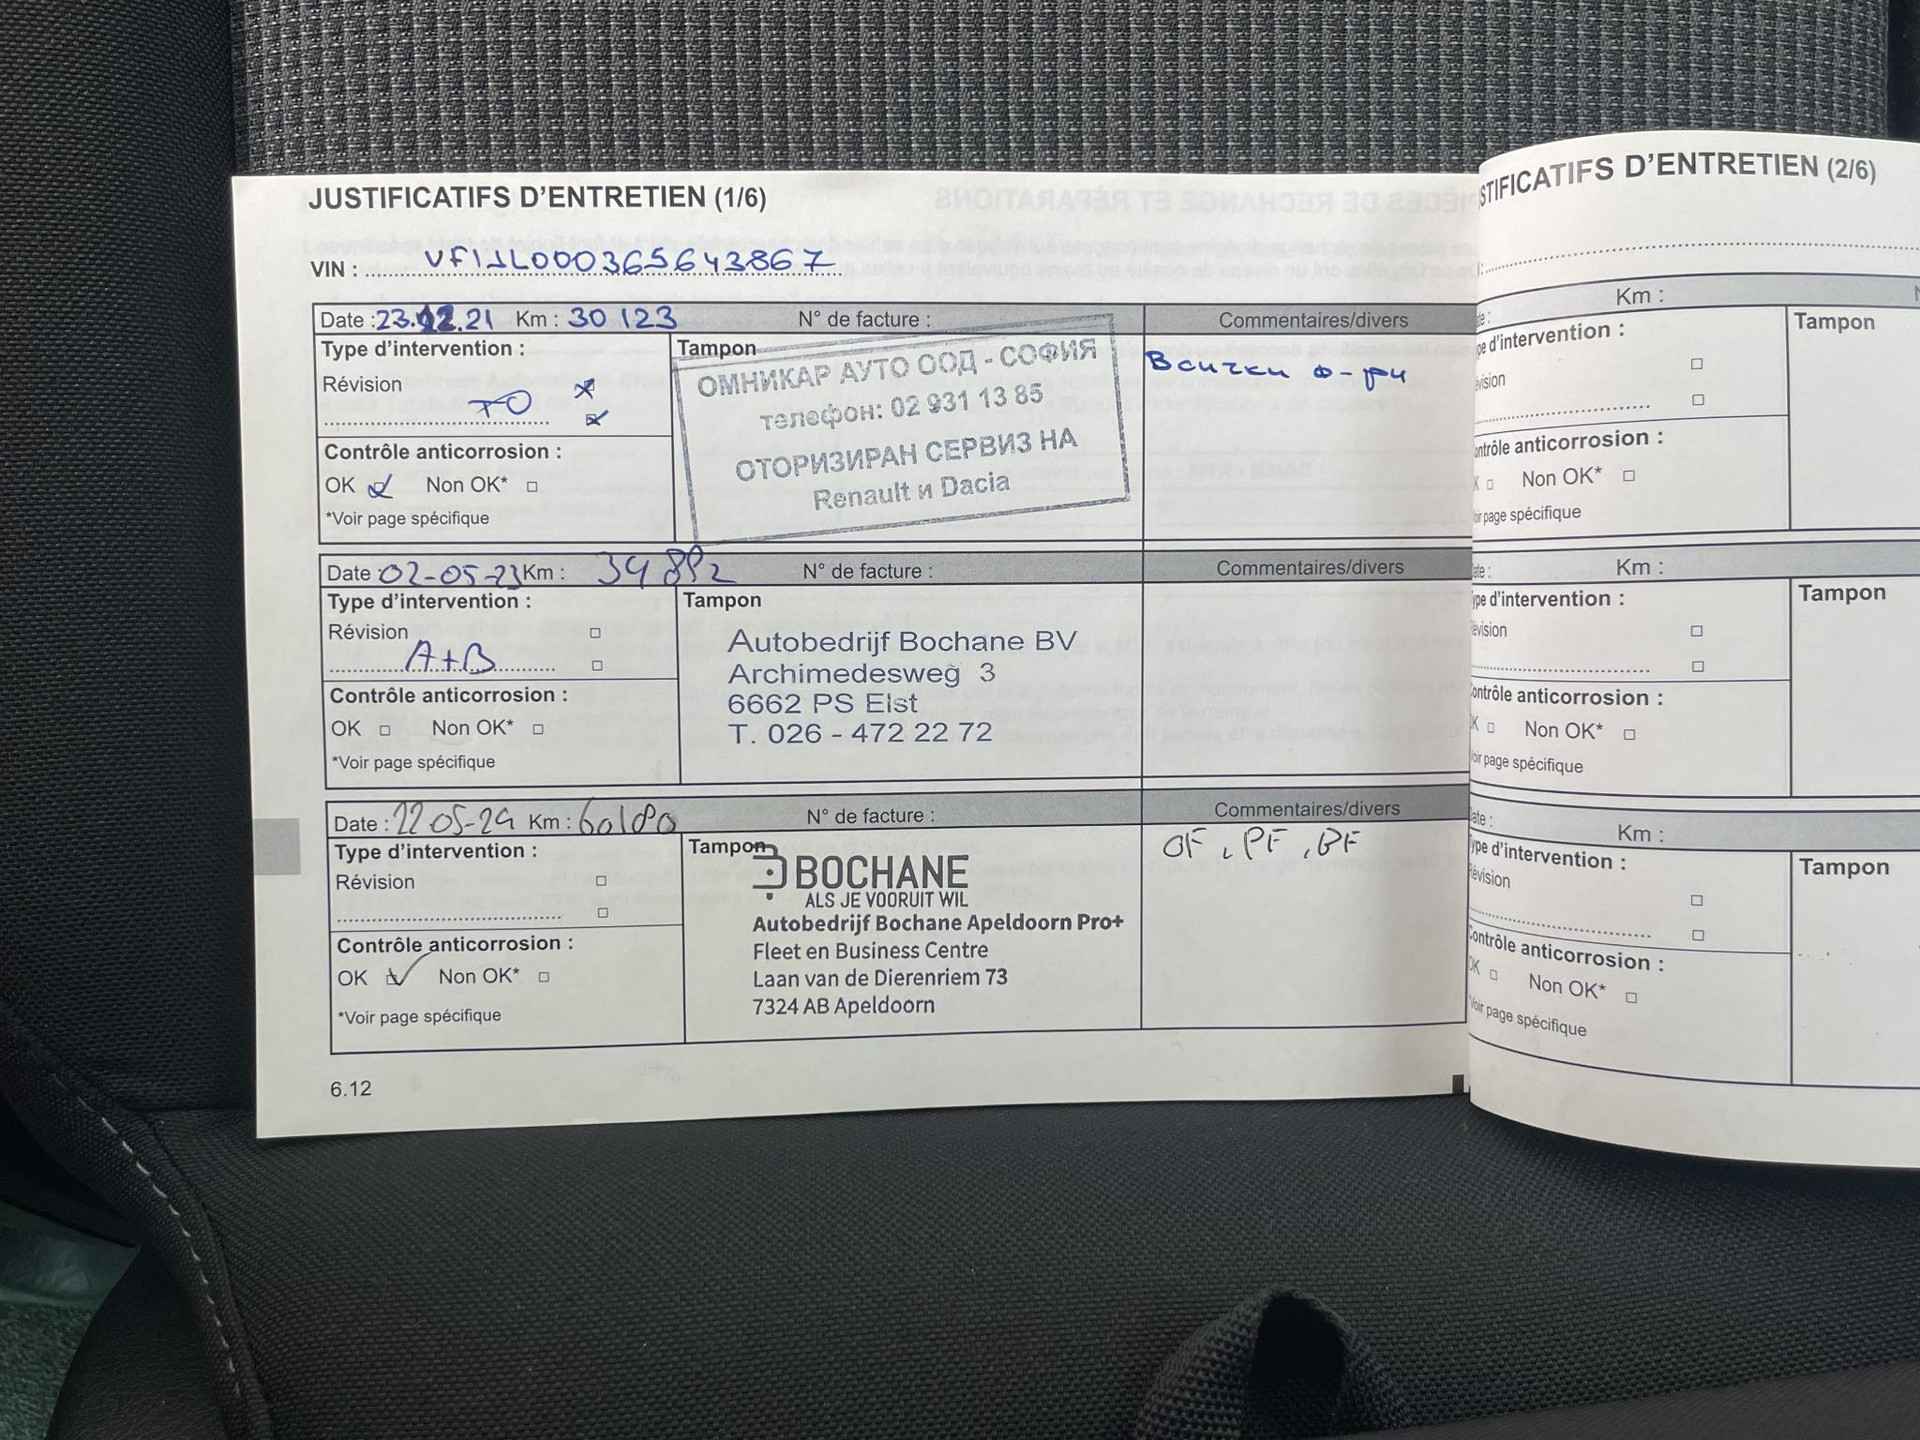 JUSTIFICATIFS D'ENTRETIEN (1/6)
VIN : VF1JL000365643867
Date : 23.12.21 Km : 30 123 N° de facture : Commentaires/divers
Type d'intervention :
Révision
TO
Contrôle anticorrosion :
OK Non OK*
*Voir page spécifique
Tampon
ОМНИКАР АУТО ООД - СОФИЯ
телефон: 02 931 13 85
ОТОРИЗИРАН СЕРВИЗ НА
Renault и Dacia
Всички ф-ри
Date : 02-05-23 Km : 34 892 N° de facture : Commentaires/divers
Type d'intervention :
Révision
A+B
Contrôle anticorrosion :
OK Non OK*
*Voir page spécifique
Tampon
Autobedrijf Bochane BV
Archimedesweg 3
6662 PS Elst
T. 026 - 472 22 72
Date : 22 05-24 Km : N° de facture : Commentaires/divers
Type d'intervention :
Révision
Contrôle anticorrosion :
OK Non OK*
*Voir page spécifique
Tampon
BOCHANE
ALS JE VOORUIT WIL
Autobedrijf Bochane Apeldoorn Pro+
Fleet en Business Centre
Laan van de Dierenriem 73
7324 AB Apeldoorn
OF, PF, BF
6.12
STIFICATIFS D'ENTRETIEN (2/6)
Km :
pe d'intervention :
vision
ontrôle anticorrosion :
K Non OK*
oir page spécifique
Tampon
ate : Km :
ype d'intervention :
évision
ontrôle anticorrosion :
K Non OK*
oir page spécifique
Tampon
ate : Km :
ype d'intervention :
évision
ontrôle anticorrosion :
OK Non OK*
*Voir page spécifique
Tampon